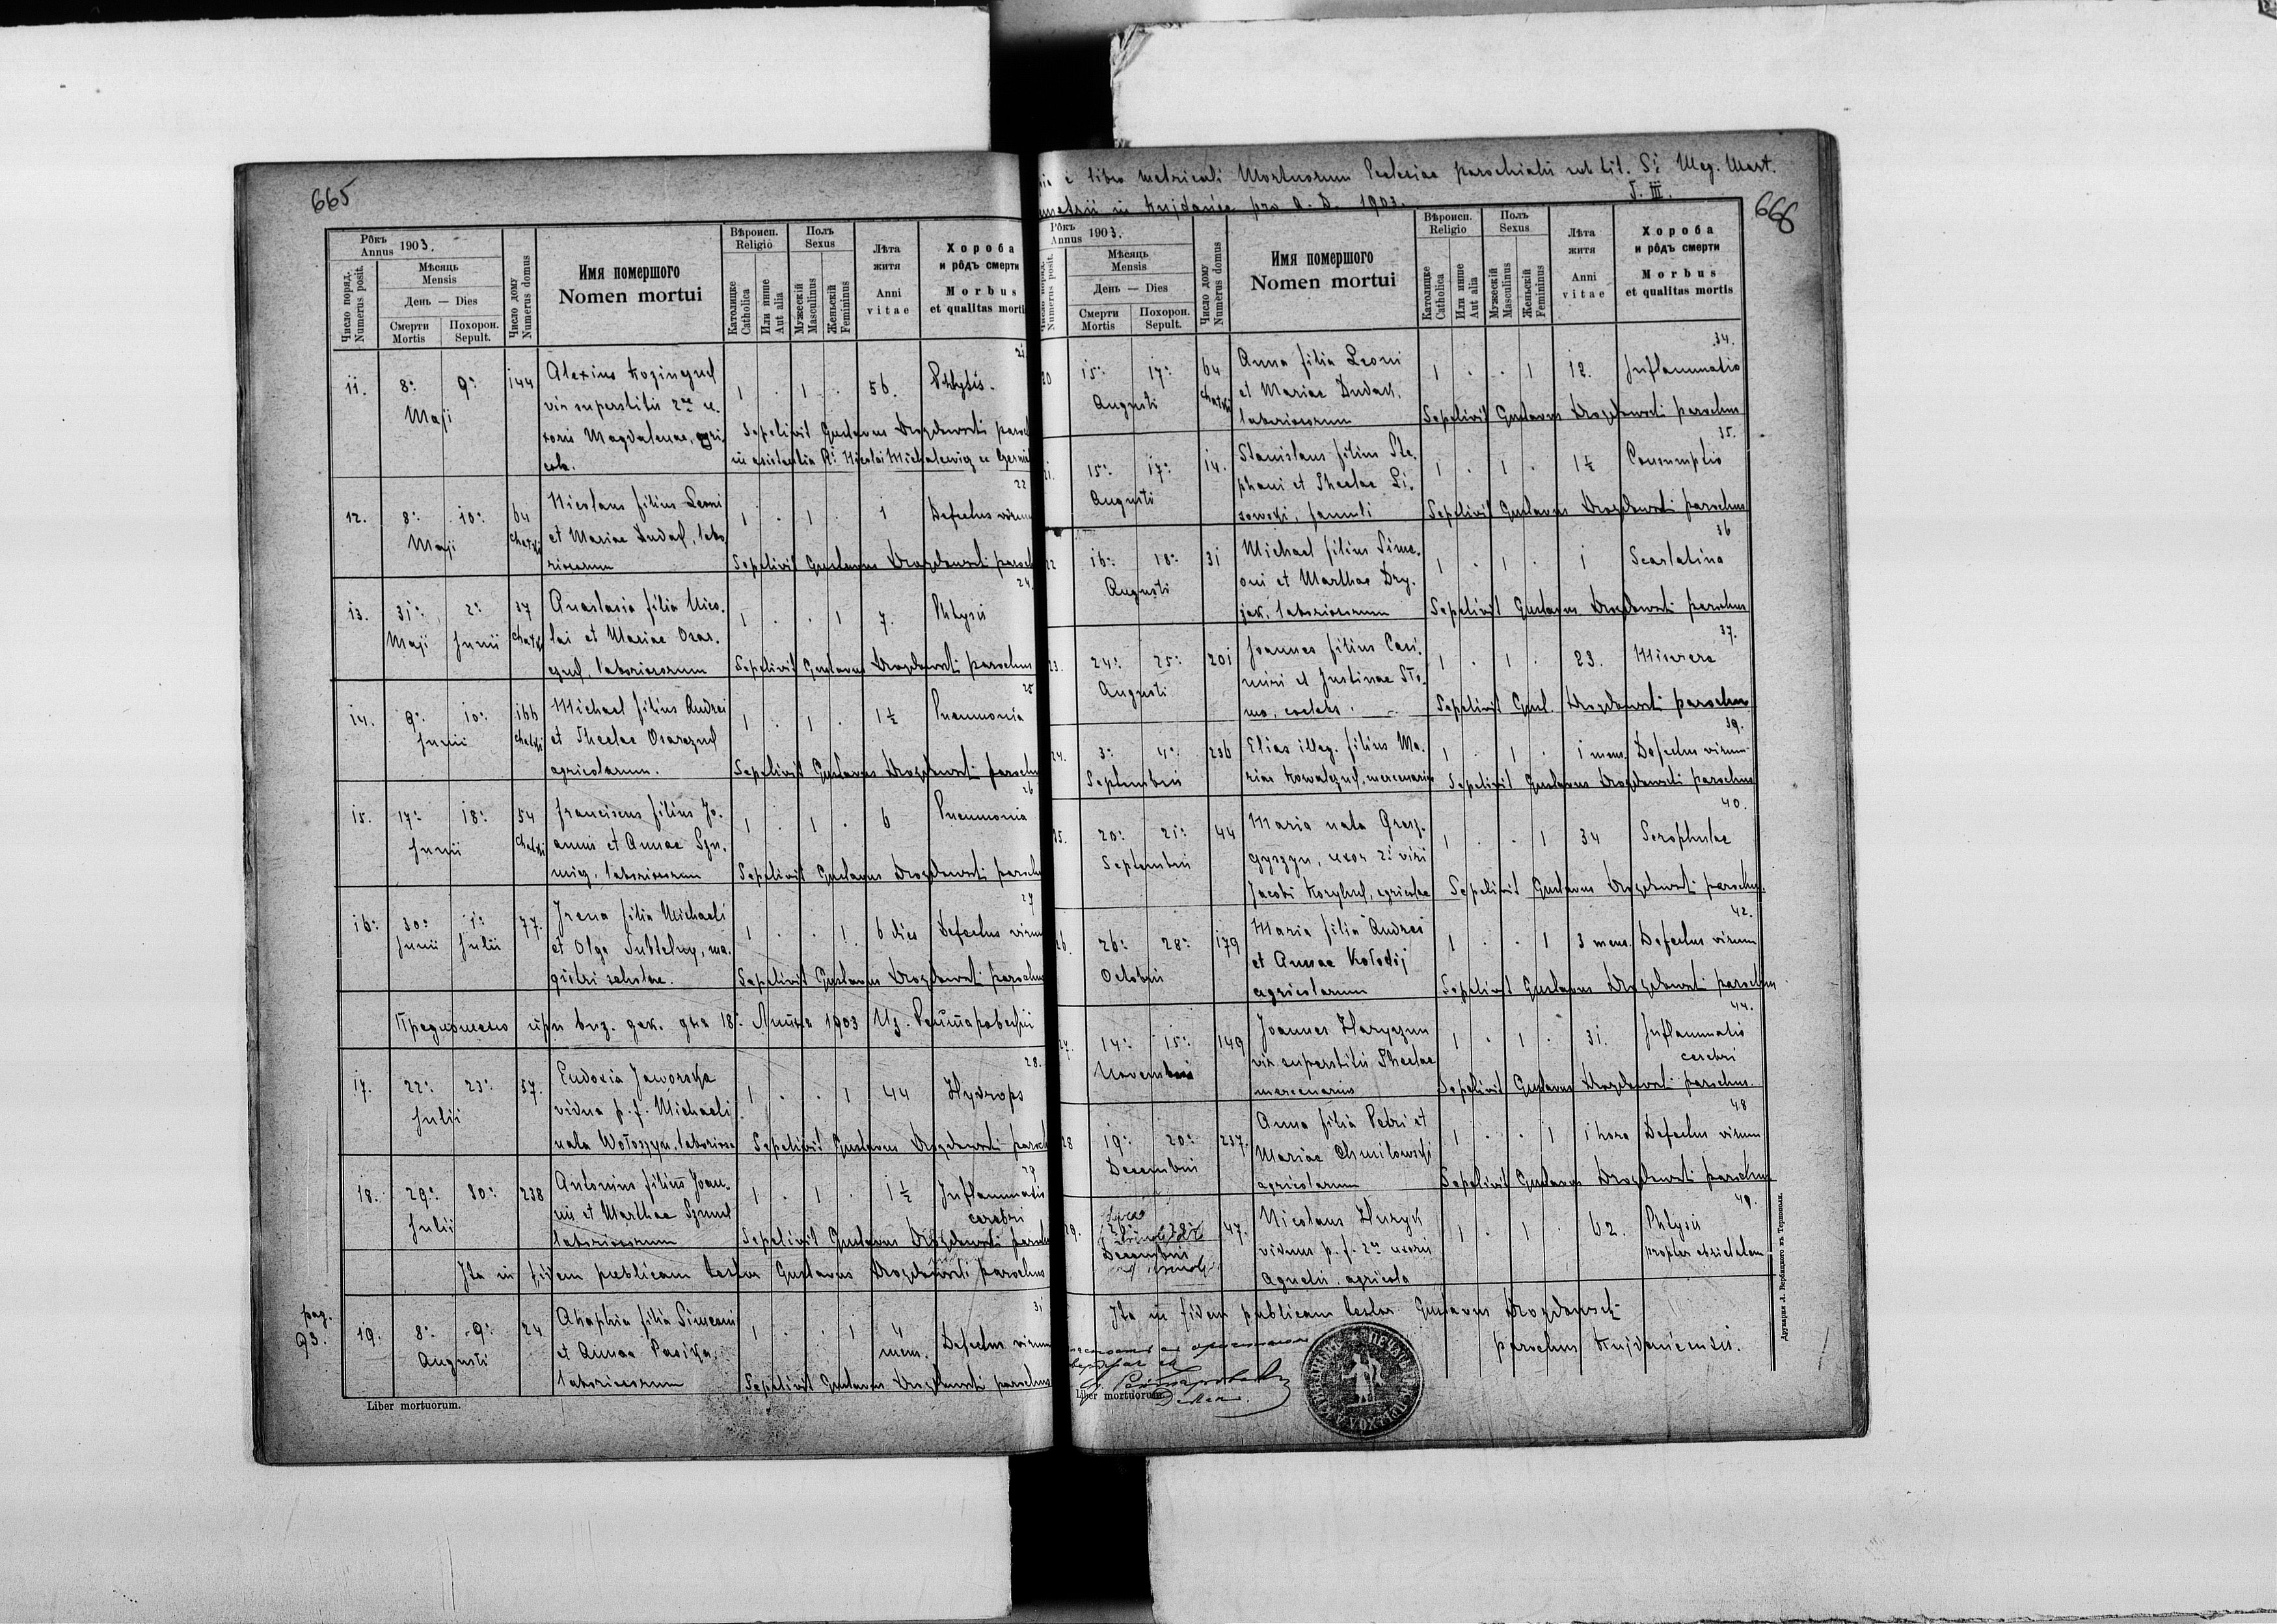 665
Рôкъ Annus 1903.
Число поряд. Numerus posit.
Мѣсяць Mensis
День — Dies
Смерти Mortis
Похорон. Sepult.
Число дому Numerus domus
Имя помершого
Nomen mortui
Вѣроисп. Religio
Католицке Catholica
Или инше Aut alia
Полъ Sexus
Мужескій Masculinus
Женьскій Femininus
Лѣта житя
Anni vitae
Хороба и рôдъ смерти
Morbus et qualitas morti
21
11. 8: 9: 144 Alexius 1 . 1 . 56. Phtysis.
Maji vir superstitis 2ae u-
xoris Magdalenae, agri- Sepelivit Gustavus Drozdowski paroch
cola. in assistentia R: Nicolai Michalewicz
22
12. 8: 10: 64 Nicolaus filius Leoni 1 . 1 . 1 Defectus virium
Maji Chatki et Mariae Dudak, labo-
riosorum Sepelivit Gustavus Drozdowski paroch
24.
13. 31: 2: 37 Anastasia filia Nico- 1 . . 1 7. Phtysis
Maji Junii Chatki lai et Mariae Osar-
czuk, laboriosorum Sepelivit Gustavus Drozdowski parochus
25
14. 9: 10: 166 Michael filius Andrei 1 . 1 . 1½ Pneumonia
Junii Chatki et Theclae Osarczuk
agricolarum. Sepelivit Gustavus Drozdowski parochus
26
15. 17: 18: 54 Franciscus filius Jo- 1 . 1 . 6 Pneumonia
Junii Chatki annis et Annae
laboriosorum Sepelivit Gustavus Drozdowski parochu
27
16: 30: 1: 77. Irena filia Michaeli 1 . . 1 6 dies Defectus virium
Junii Julii et Olga Subtelny, ma-
gistri scholae. Sepelivit Gustavus Drozdowski parochus
Предложено при виз. дек. дня 18. Липня 1903
28.
17. 22: 23: 57. Eudoxia Jaworska 1 . . 1 44 Hydrops
Julii vidua p. f. Michaeli
nata Wołoszyn, laboriosa Sepelivit Gustavus Drozdowski paroch
29
18. 29: 30: 238 Antonius filius Joan- 1 . 1 . 1½ Inflammatio
Julii nis et Marthae cerebri
laboriosorum Sepelivit Gustavus Drozdowski paroch
Ita in fidem publicam testor Gustavus Drozdowski parochus
31
pag. 93. 19. 8: 9: 24 Ahaphia filia Simeoni 1 . . 1 4 mens. Defectus virium
Augusti et Annae Pasika,
laboriosorum Sepelivit Gustavus Drozdowski parochus
Liber mortuorum.
e libro metricali Mortuorum Ecclesiae parochialis sub tit. Si Meg. Mart.
in Kujdańce pro A. D. 1903. T. III.
666
Рôкъ Annus 1903.
Numerus posit.
Мѣсяць Mensis
День — Dies
Смерти Mortis
Похорон. Sepult.
Число дому Numerus domus
Имя помершого
Nomen mortui
Вѣроисп. Religio
Католицке Catholica
Или инше Aut alia
Полъ Sexus
Мужескій Masculinus
Женьскій Femininus
Лѣта житя
Anni vitae
Хороба и рôдъ смерти
Morbus et qualitas mortis
34.
20 15: 17: 64 Anna filia Leoni 1 . . 1 12. Inflammatio
Augusti Chatki et Mariae Dudak,
laboriosorum Sepelivit Gustavus Drozdowski parochus
35.
21. 15: 17: 14. Stanislaus filius Ste- 1 . 1 . 1½ Consumptio
Augusti phani et Theclae Li-
sowski, famuli Sepelivit Gustavus Drozdowski parochus
36
22 16: 18: 31 Michael filius Sime- 1 . 1 . 1 Scarlatina
Augusti oni et Marthae Dry-
jak, laboriosorum Sepelivit Gustavus Drozdowski parochus
37.
23. 24: 25: 201 Joannes filius Casi- 1 . 1 . 23. Miserere
Augusti miri et Justinae Sło-
ma, coelebs. Sepelivit Gust. Drozdowski parochus
39.
24. 3: 4: 236 Elias illeg. filius Ma- 1 . 1 . 1 mens. Defectus virium
Septembris riae Kowalczuk, mercenariae Sepelivit Gustavus Drozdowski parochus
40.
25. 20: 21: 44 Maria nata 1 . . 1 34 Scrophulae
Septembris uxor 2i viri
Jacobi agricolae Sepelivit Gustavus Drozdowski parochus.
42.
26 26: 28: 179 Maria filia Andrei 1 . . 1 3 mens. Defectus virium
Octobris et Annae Kołodij
agricolarum Sepelivit Gustavus Drozdowski parochus
44.
27. 14: 15: 149 Joannes 1 . 1 . 31. Inflammatio
Novembris vir superstitis Theclae cerebri
mercenarius Sepelivit Gustavus Drozdowski parochus.
48
28 19: 20: 237. Anna filia Petri et 1 . . 1 1 hora Defectus virium
Decembris Mariae Chmilowski
agricolarum Sepelivit Gustavus Drozdowski parochus
49.
29. 47. Nicolaus Huzyk 1 . 1 . 62. Phtysis
Decembris viduus p. f. 2ae uxoris propter ebrietatem
Agnetis, agricola
Ita in fidem publicam testor Gustavus Drozdowski
parochus Kujdanicensis.
Liber mortuorum.
Друкарня Л. Вербицкого въ Тернополи.